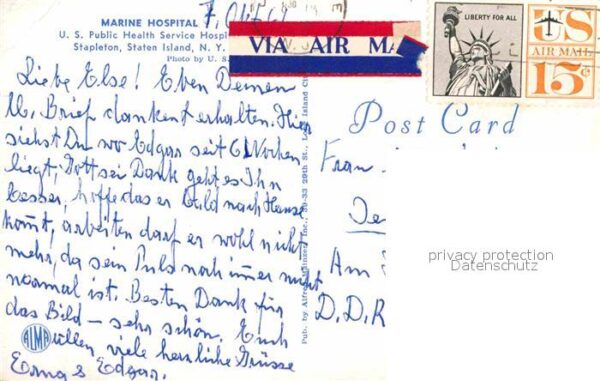 MARINE HOSPITAL
U. S. Public Health Service Hospi
Stapleton, Staten Island, N. Y.
Photo by U. S.
7. Okt. 69
VIA AIR MA
LIBERTY FOR ALL
US
AIR MAIL
15¢
Liebe Else! Eben Deinen
lb. Brief dankend erhalten. Hier
siehst Du wo Edgar seit 6 Wochen
liegt, Gott sei Dank geht es Ihn
besser, hoffe das er bald nach Hause
kommt, arbeiten darf er wohl nicht
mehr, da sein Puls noch immer nicht
normal ist. Besten Dank für
das Bild – sehr schön. Euch
allen viele herzliche Grüsse
Erna & Edgar.
ALMA
Pub. by Alfred Mainzer, Inc., 39-33 29th St., Long Island City
Post Card
Frau
Am
D.D.R
privacy protection
Datenschutz